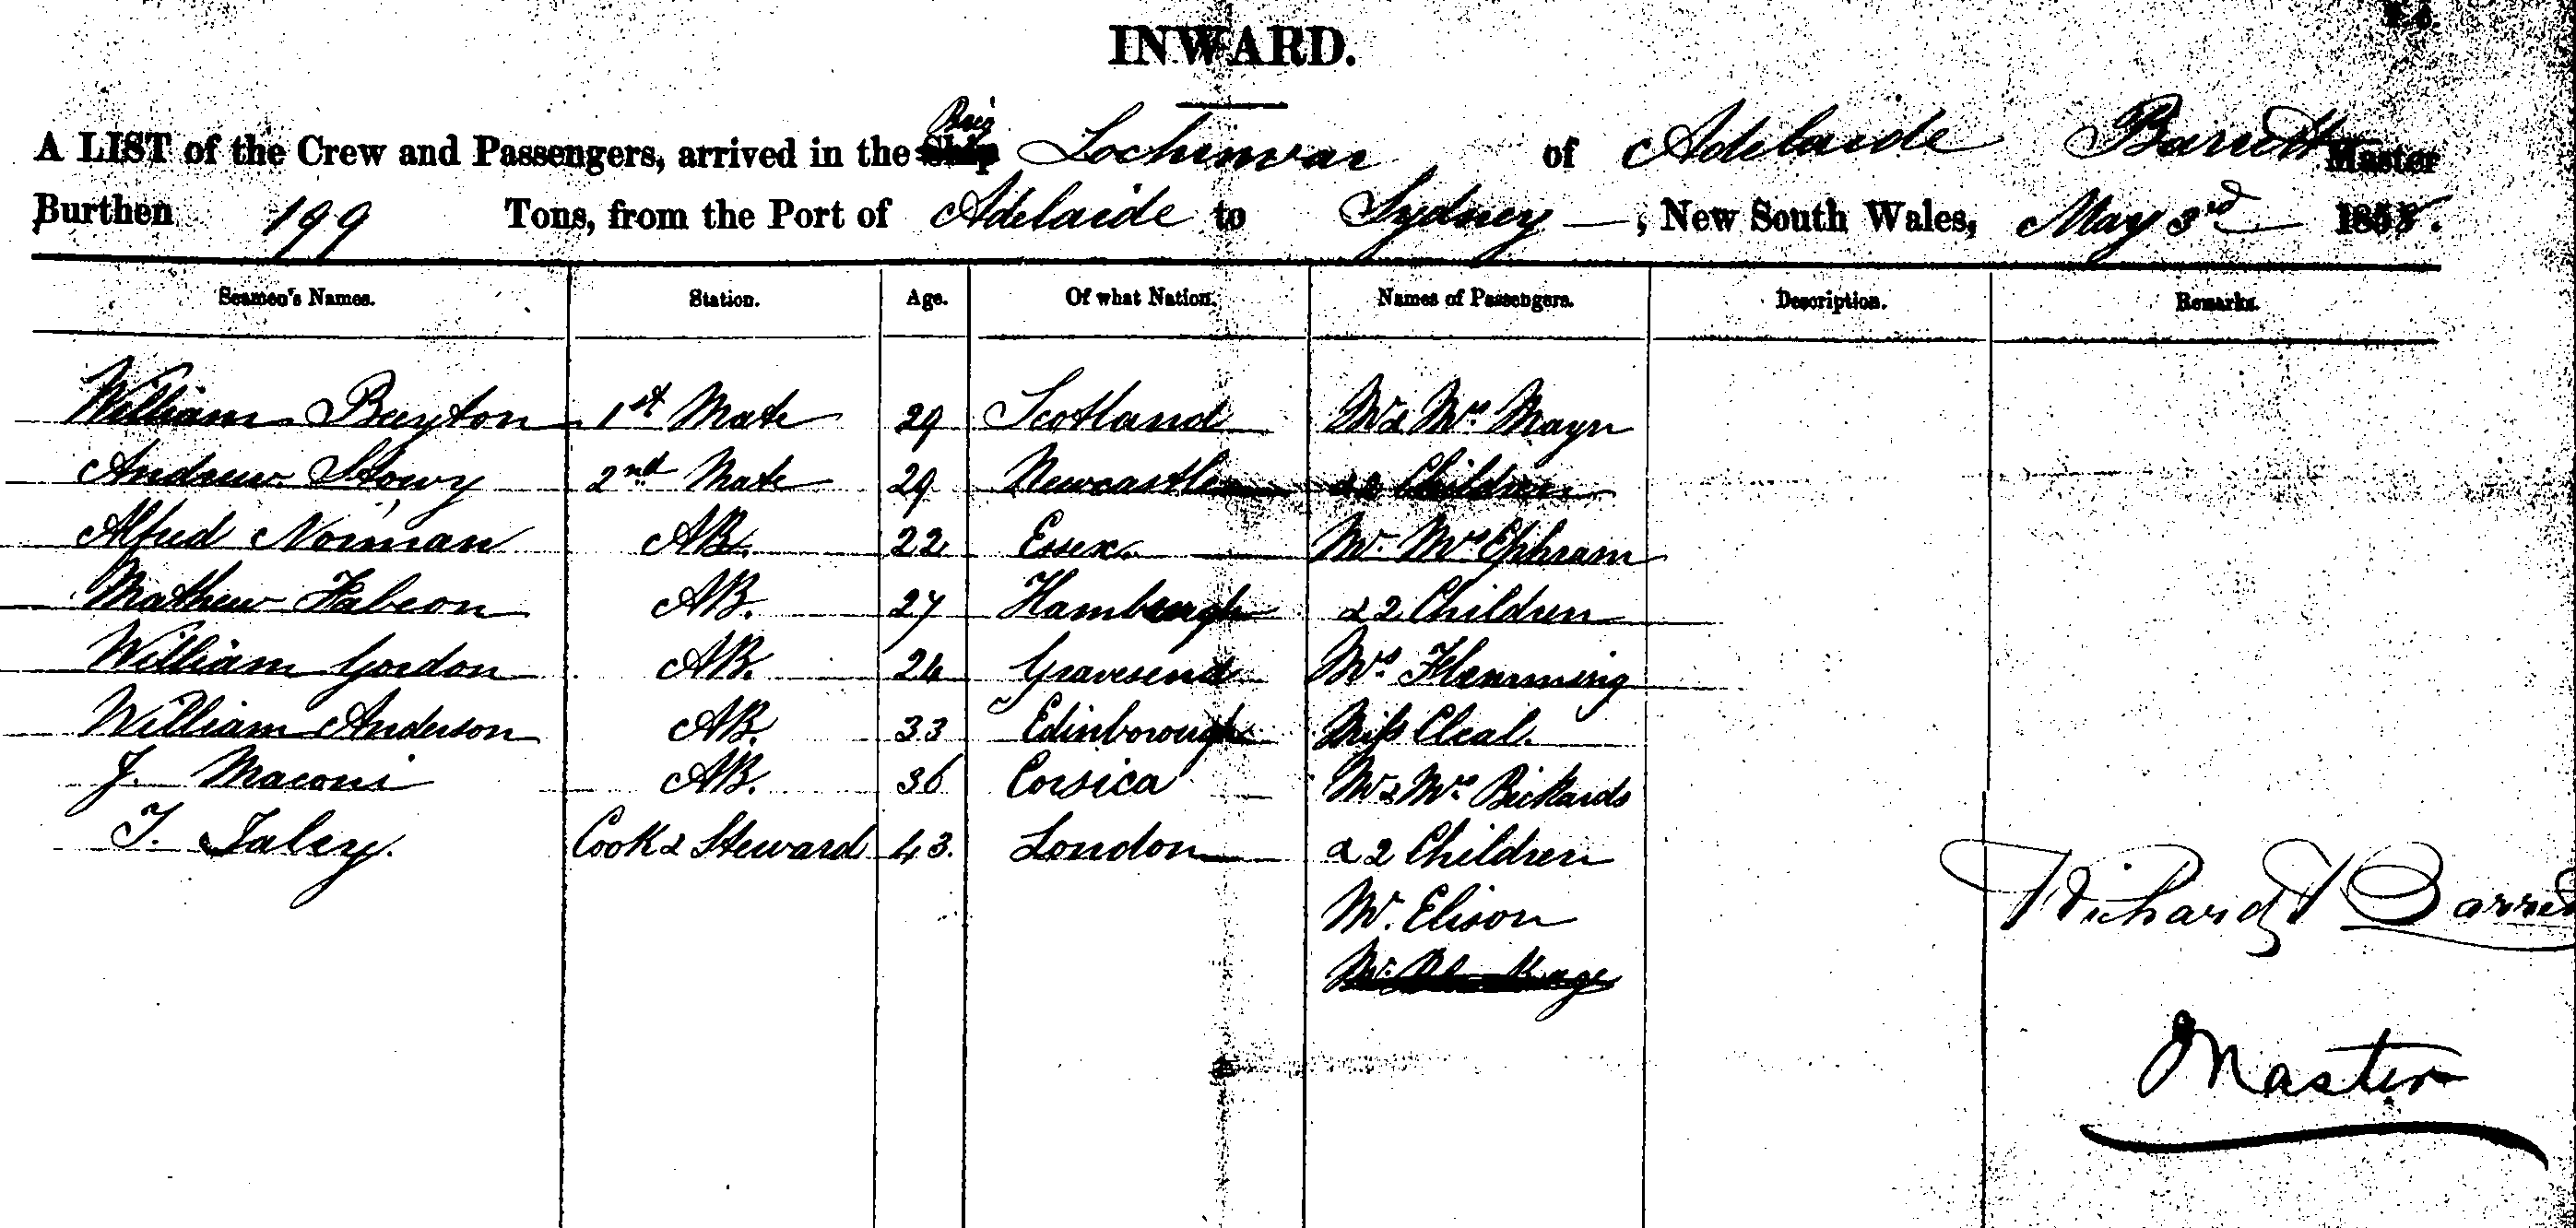 INWARD.
Brig
A LIST of the Crew and Passengers, arrived in the Ship Lochinvar of Adelaide Barrett Master
Burthen 199 Tons, from the Port of Adelaide to Sydney, New South Wales, May 3rd 1858.
Seamen's Names. Station. Age. Of what Nation. Names of Passengers. Description. Remarks.
William Bayton 1st Mate 29 Scotland Mr & Mrs Mayn
Andrew Stowy 2nd Mate 29 Newcastle & 2 Children
Alfred Norman AB. 22 Essex Mr. Mrs Ephram
Mathew Falcon AB. 27 Hamburgh & 2 Children
William Gordon AB. 24 Gravesend Mrs Flemming
William Anderson AB. 33 Edinborough Miss Cleal.
J. Maconi AB. 36 Corsica Mr & Mrs Rickards
T. Taley. Cook & Steward 43. London & 2 Children
Mr. Elison
Mr.
Richard Barrett
Master